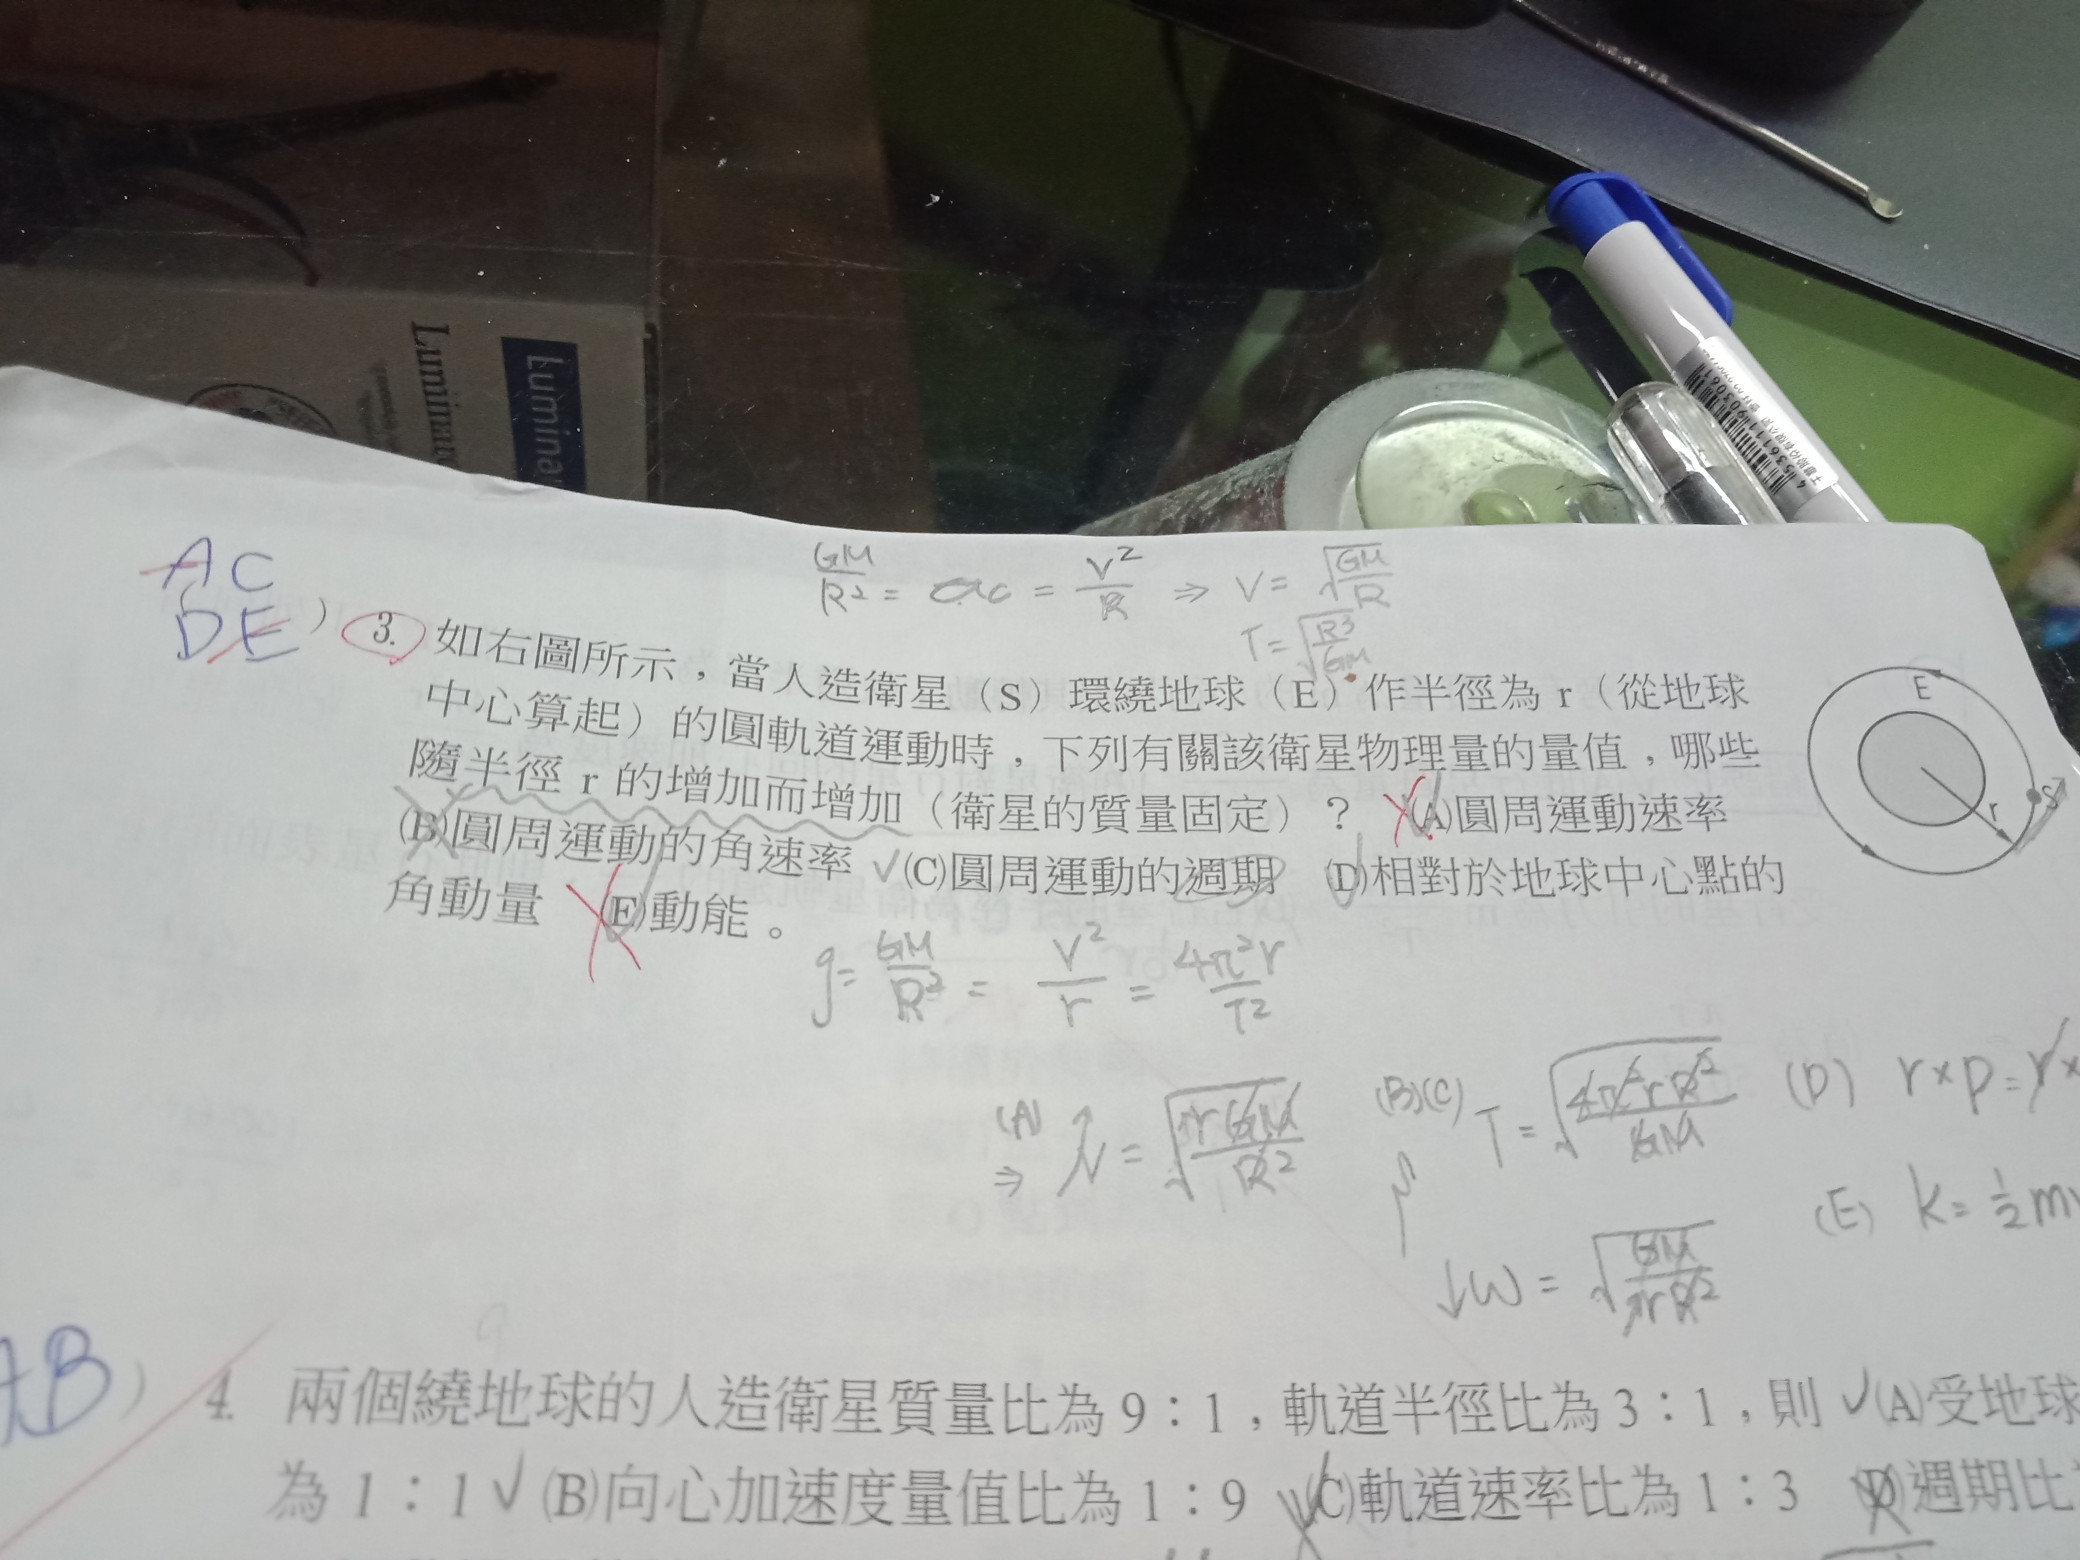 Luminar
Lumina
A C
D E
GM/R² = ac = v²/R ⇒ V = √(GM/R)
T = √(R³/GM)
) 3. 如右圖所示，當人造衛星（S）環繞地球（E）作半徑為 r（從地球
中心算起）的圓軌道運動時，下列有關該衛星物理量的量值，哪些
隨半徑 r 的增加而增加（衛星的質量固定）？ (A)圓周運動速率
(B)圓周運動的角速率 ✓(C)圓周運動的週期 (D)相對於地球中心點的
角動量 (E)動能。
E
r
S
g = GM/R² = v²/r = 4π²r/T²
(A)
⇒ ↑v = √(rGM/R²)
(B)(C) T = √(4π²rR²/GM)
↓ω = √(GM/rR²)
(D) r×p = r×
(E) k = ½m
AB) 4. 兩個繞地球的人造衛星質量比為 9：1，軌道半徑比為 3：1，則 ✓(A)受地球
為 1：1 ✓(B)向心加速度量值比為 1：9 (C)軌道速率比為 1：3 (D)週期比